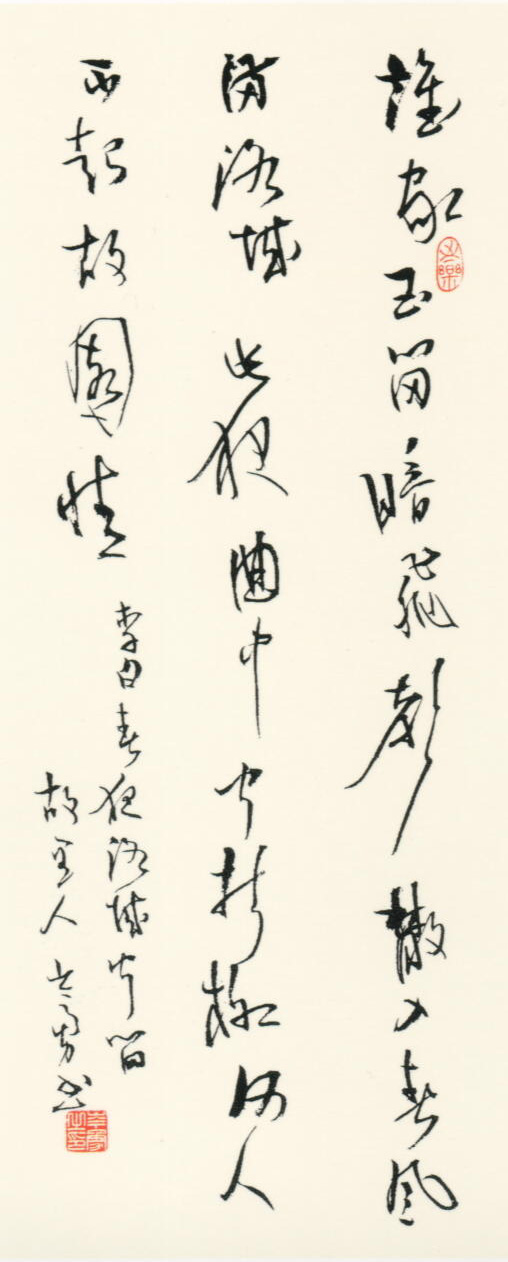 誰家玉笛暗飛聲散入春風
滿洛城此夜曲中聞折柳何人
不起故園情
李白春夜洛城聞笛
故人书